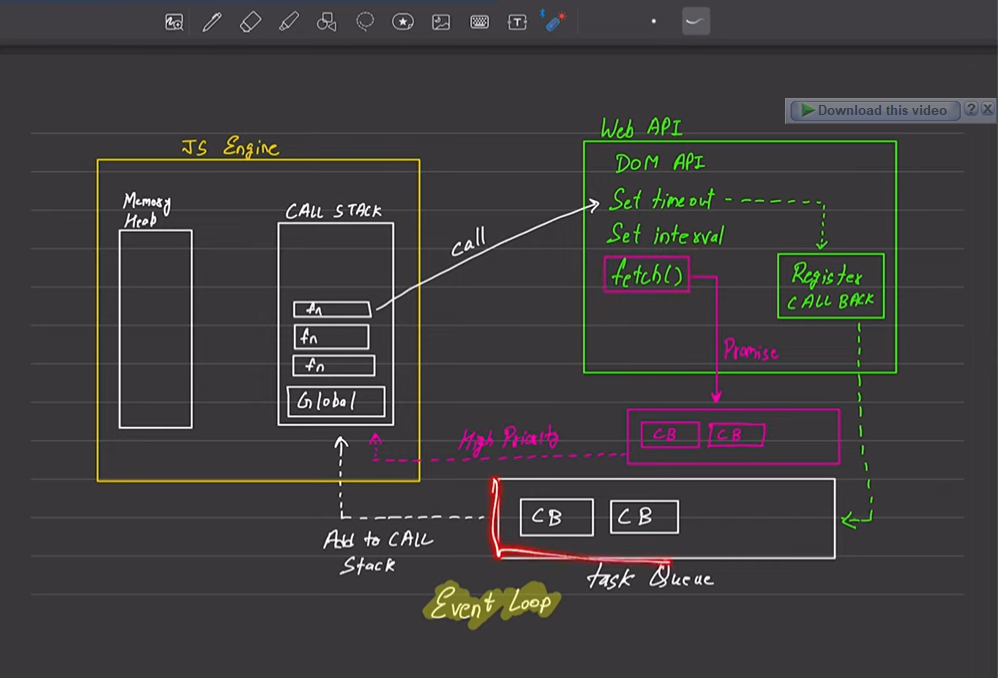 T
Download this video
?
X
JS Engine
Memory
Heap
CALL STACK
fn
fn
fn
Global
call
Web API
DOM API
Set timeout
Set interval
fetch()
Register
CALL BACK
Promise
CB
CB
High Priority
CB
CB
Add to CALL
Stack
task Queue
Event Loop